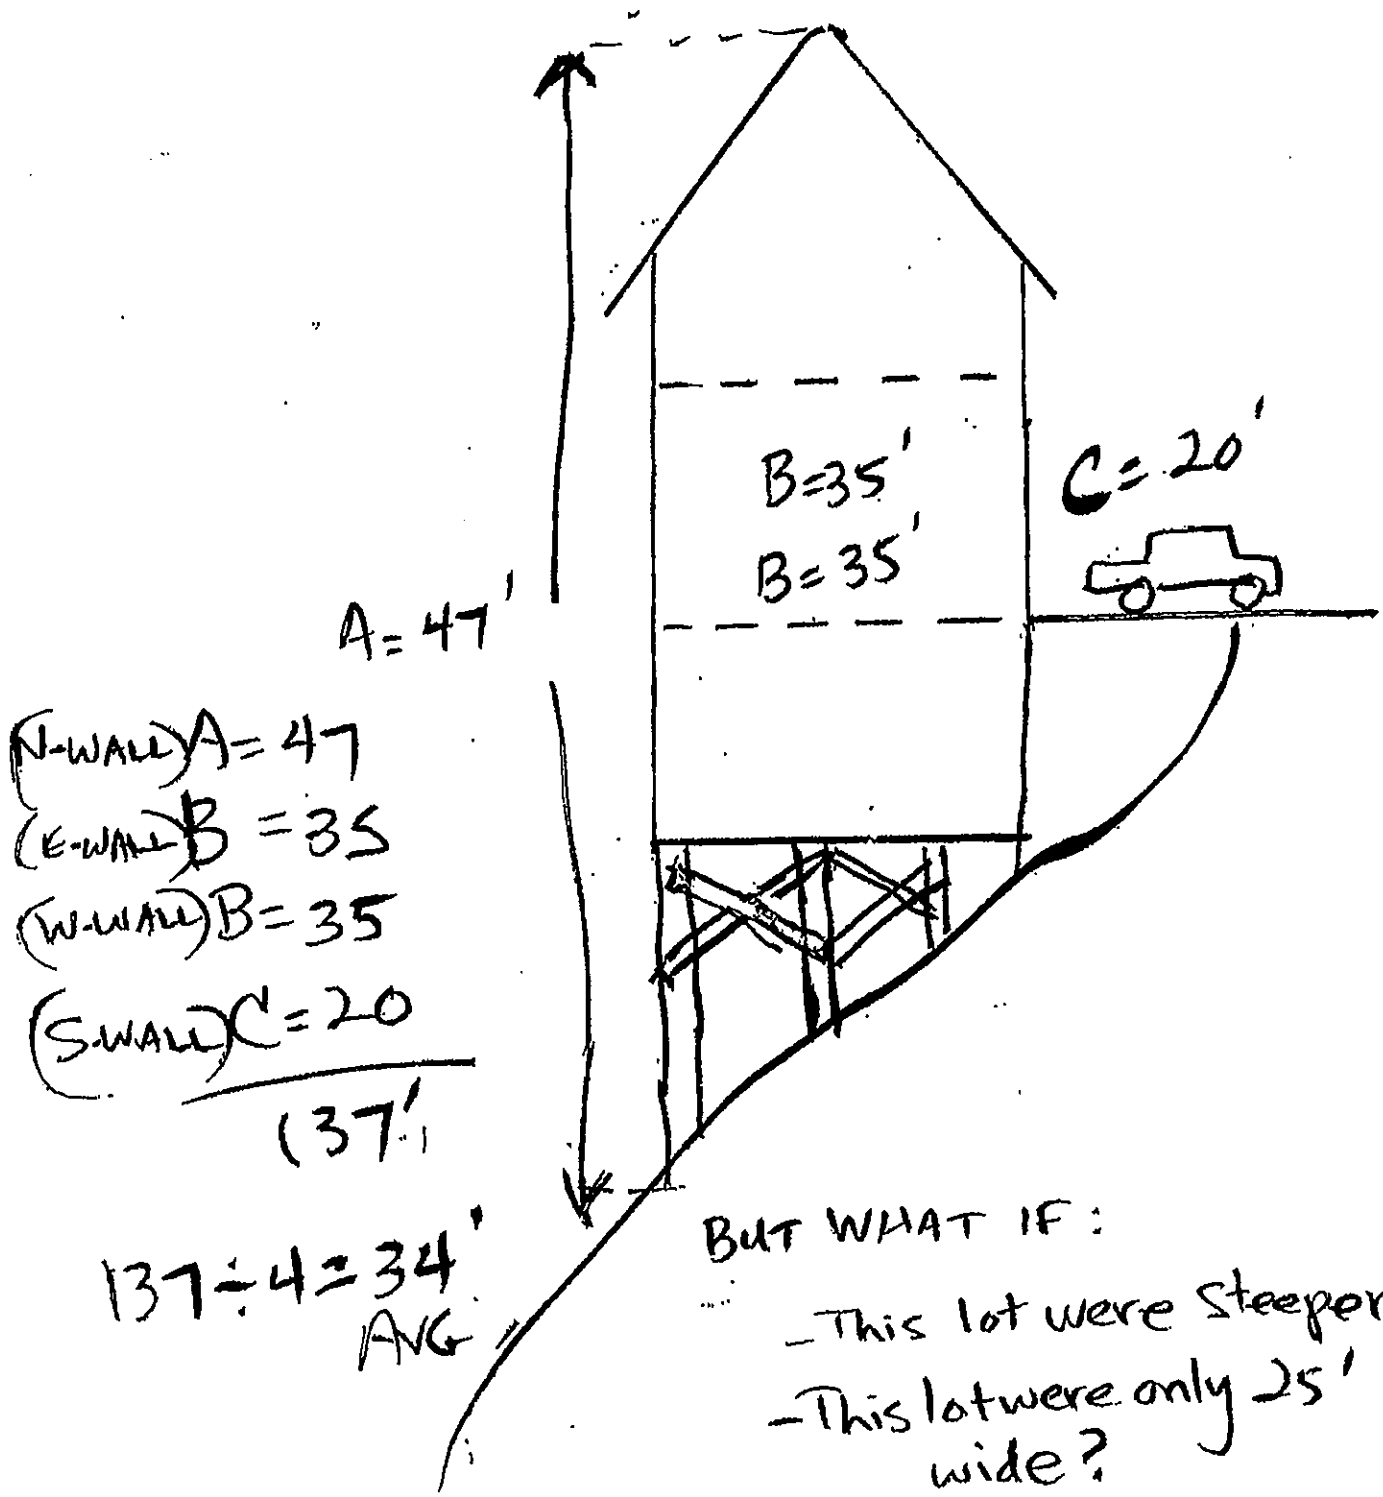 B=35'
C=20'
B=35'
A=47'
(N-WALL)A=47
(E-WALL)B=35
(W-WALL)B=35
(S-WALL)C=20
137'
137÷4=34'
AVG
BUT WHAT IF:
-This lot were steeper
-This lot were only 25'
wide?